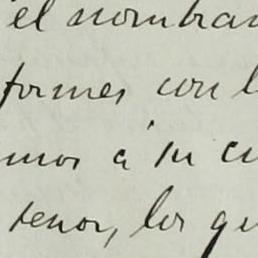 el nombra
formes con l
mos a su cu
tenor, los qu